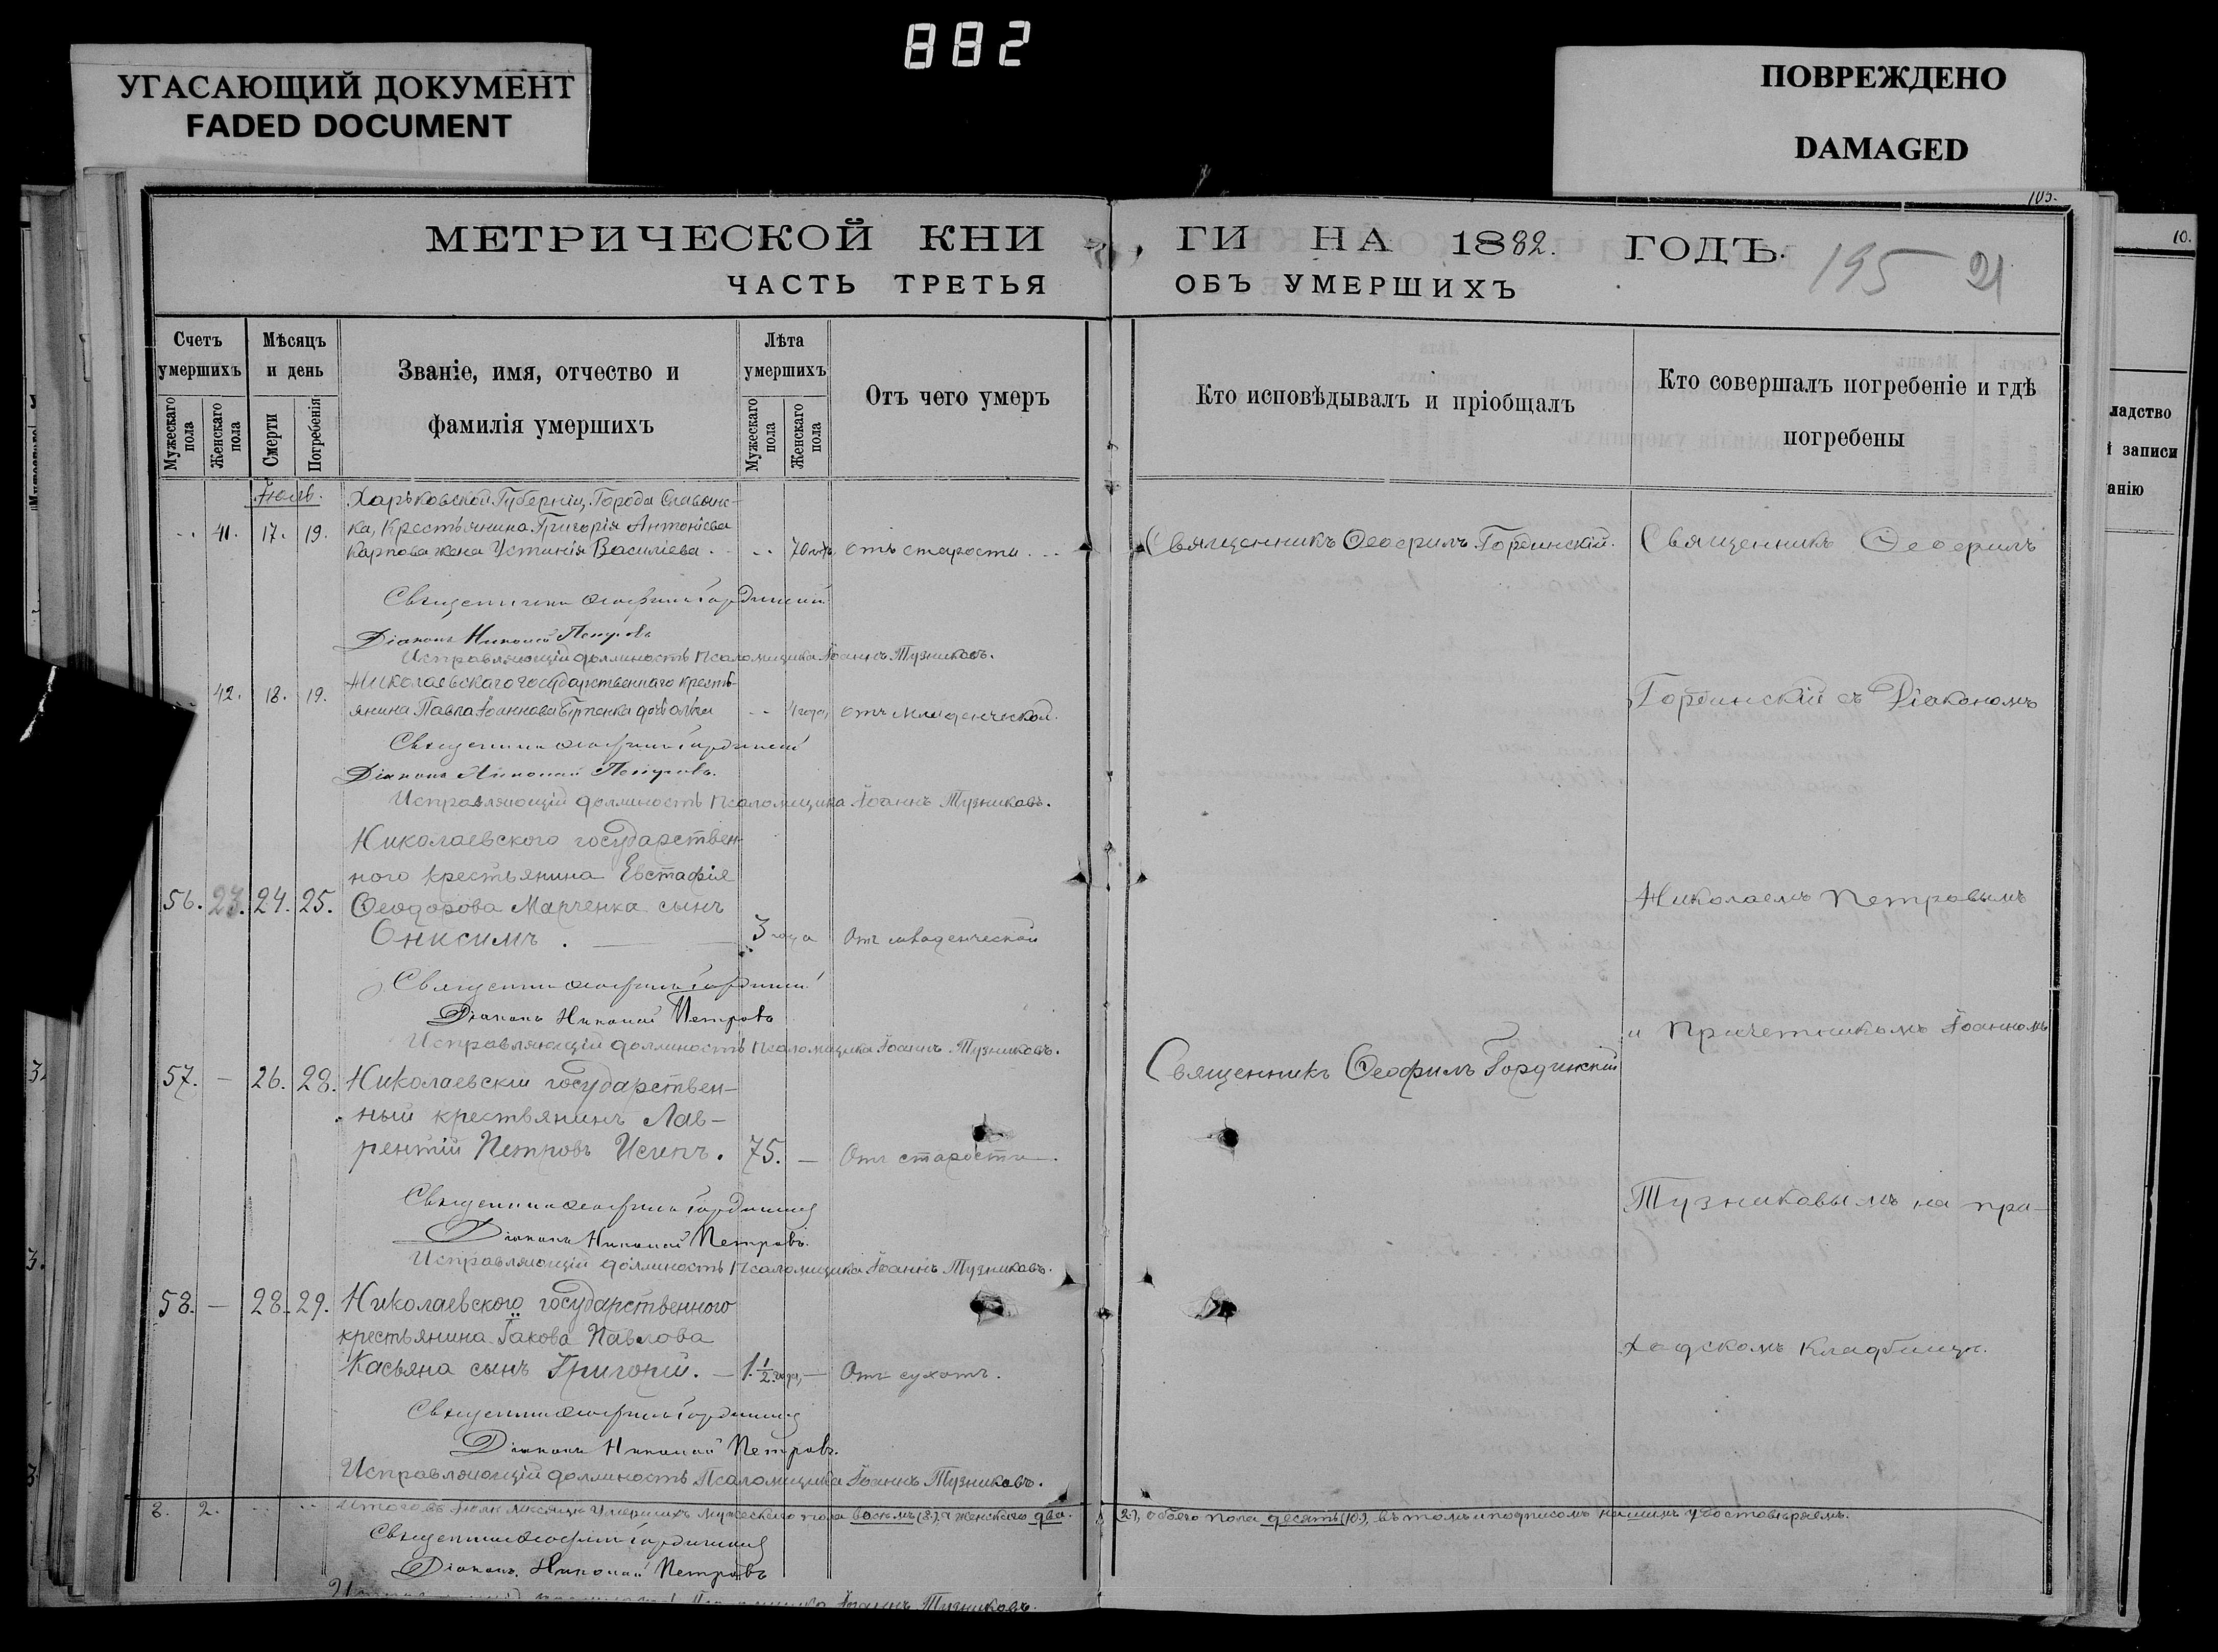 882
УГАСАЮЩИЙ ДОКУМЕНТ
FADED DOCUMENT
ПОВРЕЖДЕНО
DAMAGED
103.
10.
МЕТРИЧЕСКОЙ КНИ
ГИ НА 1882. ГОДЪ.
195 21
ЧАСТЬ ТРЕТЬЯ
ОБЪ УМЕРШИХЪ
Счетъ умершихъ
Мужескаго пола
Женскаго пола
Мѣсяцъ и день
Смерти
Погребенія
Званіе, имя, отчество и
фамилія умершихъ
Лѣта умершихъ
Мужескаго пола
Женскаго пола
Отъ чего умеръ
Кто исповѣдывалъ и пріобщалъ
Кто совершалъ погребеніе и гдѣ
погребены
ладство
й записи
анію
Харьковской Губерніи, Города Славянс-
41. 17. 19. ка, Крестьянина Григорія Антоніева
Карпова жена Устинія Василіева. 70 отъ старости
Священникъ Ѳеофилъ Гординскій.
Священникъ Ѳеофилъ
Священникъ Ѳеофилъ Гординскій
Діаконъ Николай Петровъ
Исправляющій должность Псаломщика Іоаннъ Тузниковъ.
Николаевскаго государственнаго кресть-
42. 18. 19. янина Павла Іоаннова дочь 4 года отъ младенческой.
Гординскій съ Діакономъ
Священникъ Ѳеофилъ Гординскій
Діаконъ Николай Петровъ.
Исправляющій должность Псаломщика Іоаннъ Тузниковъ.
Николаевского государствен-
ного крестьянина Евстафія
56. 23. 24. 25. Ѳеодорова Марченка сынъ
Онисимъ. 3 года Отъ младенческой
Николаемъ Петровымъ
Священникъ Ѳеофилъ Гординскій
Діаконъ Николай Петровъ
Исправляющій должность Псаломщика Іоаннъ Тузниковъ.
и Причетникомъ Іоанномъ
57. – 26. 28. Николаевскій государствен-
ный крестьянинъ Лав-
рентій Петровъ Исипъ. 75. – Отъ старости.
Священникъ Ѳеофилъ Гординскій
Священникъ Ѳеофилъ Гординскій
Діаконъ Николай Петровъ.
Исправляющій должность Псаломщика Іоаннъ Тузниковъ.
Тузниковымъ на при-
58. – 28. 29. Николаевского государственного
крестьянина Іакова Павлова
Касьяна сынъ Григорій. – 1 1/2 года, – Отъ сухотъ.
ходскомъ кладбищѣ.
Священникъ Ѳеофилъ Гординскій
Діаконъ Николай Петровъ.
Исправляющій должность Псаломщика Іоаннъ Тузниковъ.
8. 2. Итого въ Іюлѣ мѣсяцѣ умершихъ мужескаго пола восемь (8.) а женскаго два.
(2.), обоего пола десять (10.), въ томъ и подписомъ нашимъ удостовѣряемъ.
Священникъ Ѳеофилъ Гординскій
Діаконъ Николай Петровъ
Іоаннъ Тузниковъ.